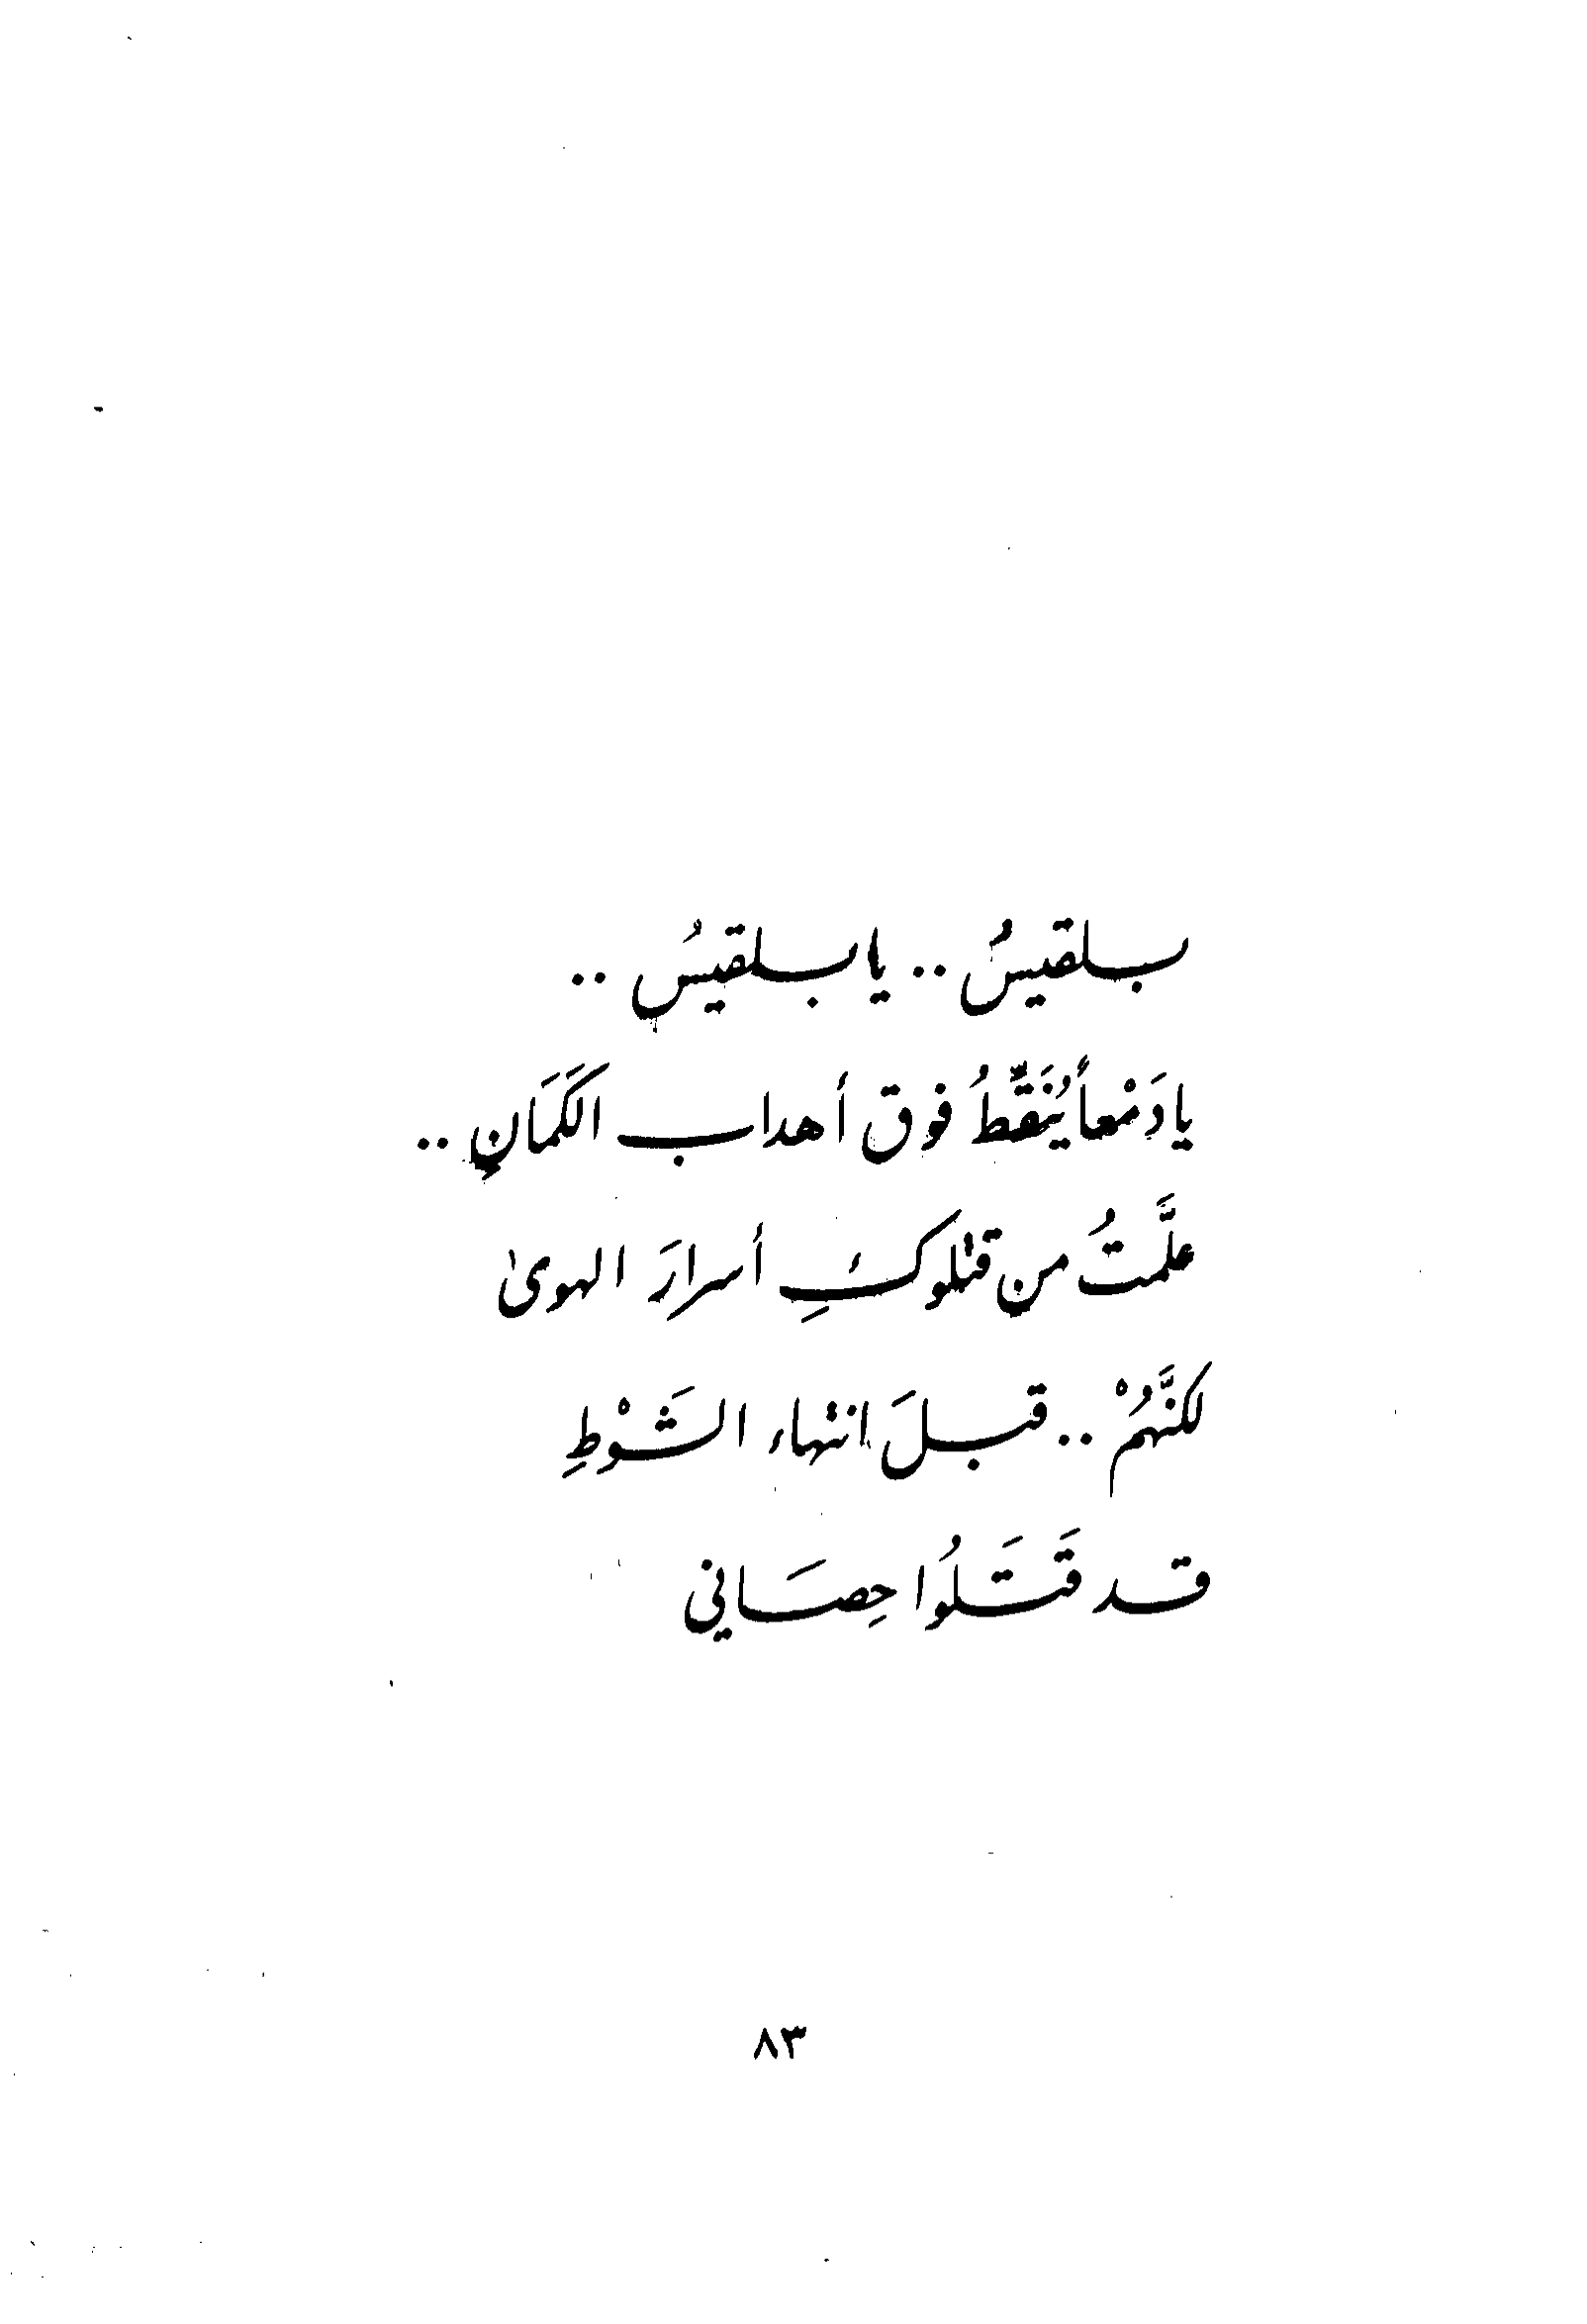 بلقيسُ .. يا بلقيسُ ..
يا دَمْعاً يُنَقِّطُ فوق أهداب الكَمَانِ ..
علَّمتُ من قتلوكِ أسرارَ الهوى
لكنَّهُمْ .. قبلَ انتهاء الشَّوْطِ
قد قَتَلُوا حِصَاني
٨٣